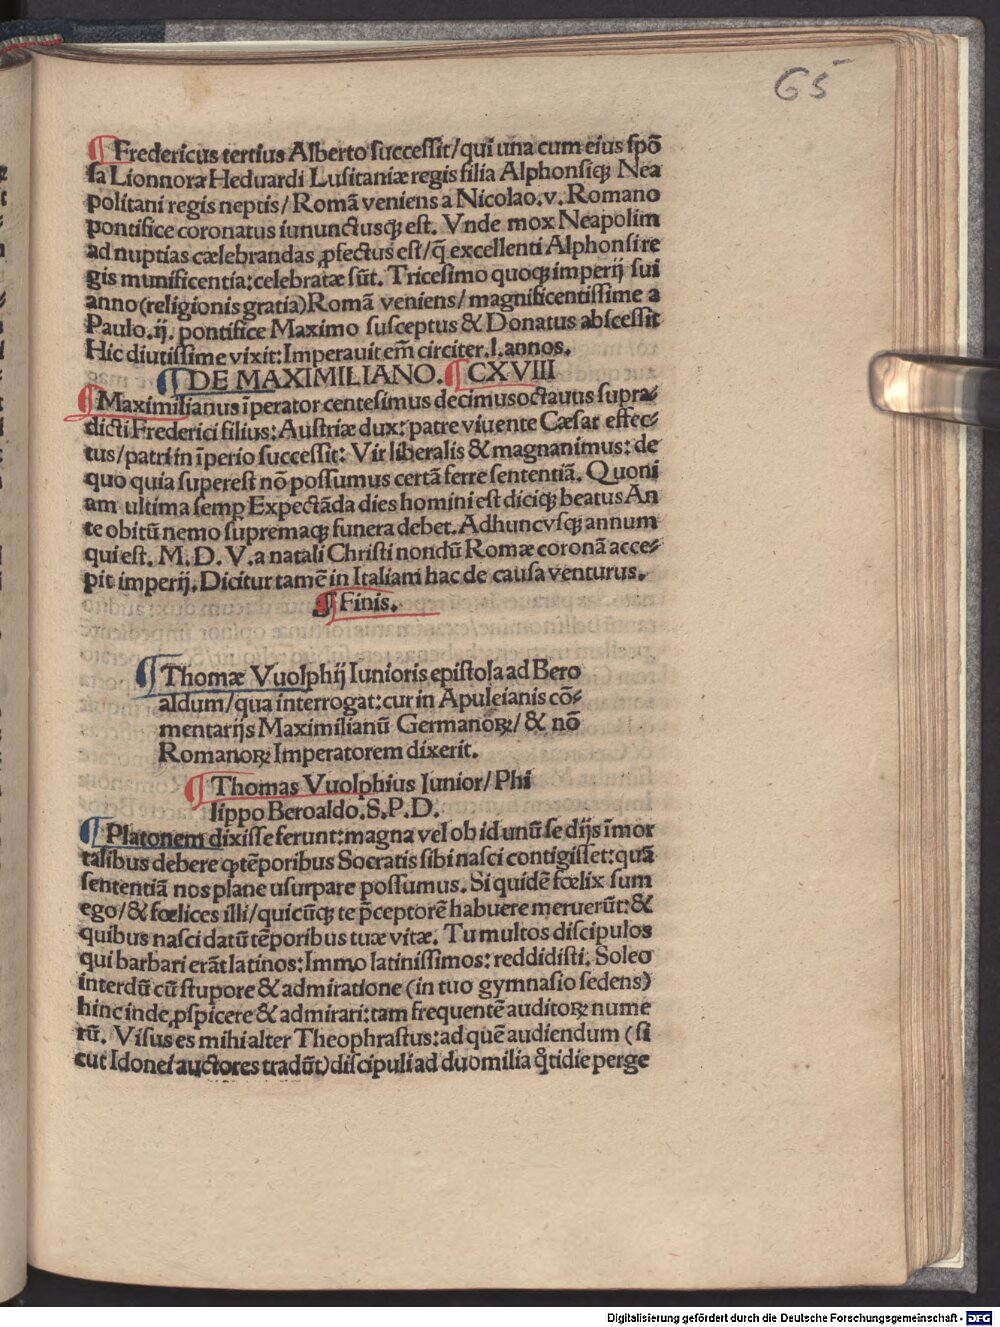 65
¶Fredericus tertius Alberto successit/qui una cum eius spõ
sa Lionnoræ Heduardi Lusitaniæ regis filia Alphonsiqꝫ Nea
politani regis neptis/ Romã veniens a Nicolao.v. Romano
pontifice coronatus iununctusqꝫ est. Vnde mox Neapolim
ad nuptias cælebrandas ꝓfectus est/q̃ excellenti Alphonsi re
gis munificentia:celebratæ sũt. Tricesimo quoqꝫ imperij sui
anno(religionis gratia)Romã veniens/ magnificentissime a
Paulo.ij. pontifice Maximo susceptus & Donatus abscessit
Hic diutissime vixit:Imperauit em̃ circiter.l.annos.
¶DE MAXIMILIANO. ¶CXVIII
¶Maximilianus ĩperator centesimus decimusoctauus supra⸗
dicti Frederici filius: Austriæ dux: patre viuente Cæsar effec⸗
tus/patri in ĩperio successit: Vir liberalis & magnanimus: de
quo quia superest nõ possumus certã ferre sententiã. Quoni
am ultima semꝑ Expectãda dies homini est diciqꝫ beatus An
te obitũ nemo supremaqꝫ funera debet. Adhuncvsqꝫ annum
qui est. M. D. V. a natali Christi nondũ Romæ coronã acce⸗
pit imperij. Dicitur tamẽ in Italiam hac de causa venturus.
¶Finis.
¶Thomæ Vuolphij Iunioris epistola ad Bero
aldum/qua interrogat:cur in Apuleianis cõ⸗
mentarijs Maximilianũ Germanoꝝ/ & nõ
Romanoꝝ Imperatorem dixerit.
¶Thomas Vuolphius Iunior/ Phi
lippo Beroaldo.S.P.D.
¶Platonem dixisse ferunt:magna vel ob id unũ se dijs ĩmor
talibus debere ꝙ tẽporibus Socratis sibi nasci contigisset:quã
sententiã nos plane usurpare possumus. Si quidẽ fœlix sum
ego/& fœlices illi/quicũqꝫ te p̃ceptorẽ habuere meruerũt:&
quibus nasci datũ tẽporibus tuæ vitæ. Tu multos discipulos
qui barbari erãt latinos: Immo latinissimos: reddidisti. Soleo
interdũ cũ stupore & admiratione (in tuo gymnasio sedens)
hinc inde ꝓspicere & admirari:tam frequentẽ auditoꝝ nume
rũ. Visus es mihi alter Theophrastus:ad quẽ audiendum (si
cut Idonei auctores tradũt)discipuli ad duomilia q̃tidie perge
Digitalisierung gefördert durch die Deutsche Forschungsgemeinschaft - DFG